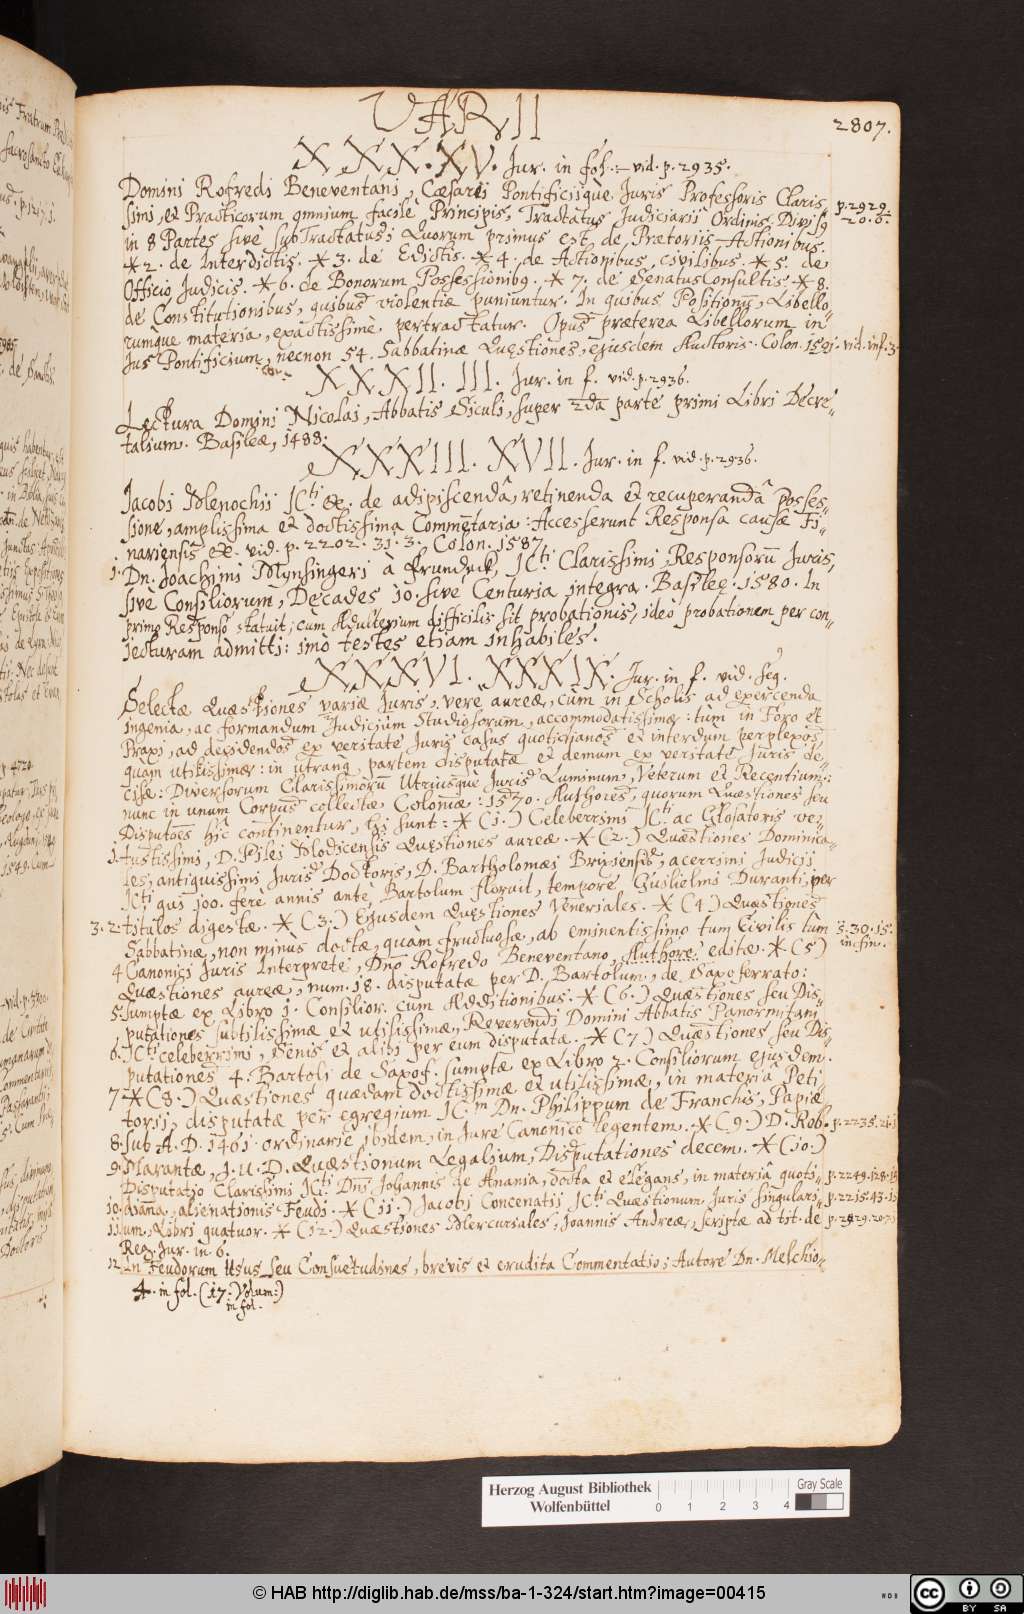 VARII
2807.
XXX. XV. Jur. in fol. – vid. p. 2935.
Domini Rofredi Beneventani, Cæsarei Pontificiique Juris Professoris Claris-
simi, et Practicorum omnium facilè Principis, Tractatus Judiciarii Ordinis, Divisq
p. 2929.
20. 6.
in 8 Partes sive subTractatus; Quorum primus est de Prætoriis Actionibus.
* 2. de Interdictis. * 3. de Edictis. * 4. de Actionibus civilibus. * 5. de
Officio Judicis. * 6. de Bonorum Possessionibq. * 7. de SenatusConsultis. * 8.
de Constitutionibus, quibus violentiæ puniuntur. In quibus Positionum, Libello-
rumque materia, exactissimè pertractatur. Opus præterea Libellorum in
Jus Pontificium, necnon 54. Sabbatinæ Quæstiones, ejusdem Auctoris. Colon. 1591. vid. inf. 3.
XXXII. III. Jur. in f. vid. p. 2936.
Lectura Domini Nicolai, Abbatis Siculi, super 2da parte primi Libri Decre-
talium. Basileæ, 1488.
XXXIII. XVII. Jur. in f. vid. p. 2936.
Jacobi Menochii JCti &c. de adipiscendâ, retinenda et recuperandâ Posses-
sione, amplissima et doctissima Commētaria: Accesserunt Responsa causæ Fi-
nariensis &c. vid. p. 2202. 31. 3. Colon. 1587.
1. Dn. Joachimi Mynsingeri à Frundeck, JCti Clarissimi, Responsorū Juris,
sive Consiliorum, Decades 10. sive Centuria integra. Basileę. 1580. In
primo Responso statuit; cum Adulterium difficilis sit probationis, ideò probationem per con-
jecturam admitti: imò testes etiam inhabiles.
XXXVI. XXXIX. Jur. in f. vid. seq.
Selectæ Quæstiones variæ Juris, vere aureæ, cùm in Scholis ad exercenda
ingenia, ac formandum Judicium Studiosorum, accommodatissimæ: tùm in Foro et
Praxi, ad decidendos ex veritate Juris casus quotidianos et interdum perplexos,
quam utilissimæ: in utranq partem disputatæ et demum ex veritate Juris de-
cisæ: Diversorum Clarissimorū Utriusque Juris Luminum, Veterum et Recentium:
nunc in unum Corpus collectæ Coloniæ: 1570. Authores, quorum Quæstiones seu
Disputões hîc continentur, hi sunt: * (1.) Celeberrimi JCti ac Glosatoris ve-
1. tustissimi, D. Pilei Modicensis Quęstiones aureæ. * (2.) Quæstiones Dominica-
les, antiquissimi Juris Doctoris, D. Bartholomæi Brixiensis, acerrimi Judicii
JCti qui 100. ferè annis ante Bartolum floruit, tempore Guilielmi Duranti, per
3. 2. titulos digestæ. * (3.) Ejusdem Quęstiones Veneriales. * (4.) Quæstiones
Sabbatinæ, non minus doctæ, quàm fructuosæ, ab eminentissimo tum Civilis tùm
3. 30. 15.
in fin.
4 Canonici Juris Interprete, Dno Rofredo Beneventano, Authore, editæ. * (5)
Quæstiones aureæ, num. 18. disputatæ per D. Bartolum, de Saxoferrato:
5. sumptæ ex Libro 1. Consilior. cum Additionibus. * (6.) Quæstiones seu Dis-
putationes subtilissimæ et utilissimæ, Reverendi Domini Abbatis Panormitani
6. JCti celeberrimi, Senis et alibi per eum disputatæ. * (7) Quæstiones seu Dis-
putationes 4. Bartoli de Saxof. sumptæ ex Libro 2. Consiliorum ejusdem.
7 * (8.) Quæstiones quædam doctissimæ et utilissimæ, in materia Peti-
torii, disputatæ per egregium JCm Dn. Philippum de Franchis, Papiæ
8. sub A. D. 1461. ordinariè ibidem, in Jure Canonico legentem. * (9.) D. Rob. p. 2235. 21. 1
9. Marantæ, J. U. D. Quæstionum Legalium, Disputationes decem. * (10.)
Disputatio Clarissimi JCti Dni Johannis de Anania, docta et elegans, in materiâ quoti- p. 2249. 128. 13
10. dianâ, alienationis Feudi. * (11.) Jacobi Concenatii JCti Quæstionum Juris singulari- p. 2215. 43. 13
11. um, Libri quatuor. * (12.) Quæstiones Mercuriales, Joannis Andreæ, scriptæ ad tit. de p. 2429. 207. 1
Reg. Jur. in 6.
12. In Feudorum Usus seu Consuetudines, brevis et erudita Commentatio; Autore Dn. Melchio-
4. in fol. (17. Volum:)
in fol.
Herzog August Bibliothek
Wolfenbüttel
0 1 2 3 4
Gray Scale
© HAB http://diglib.hab.de/mss/ba-1-324/start.htm?image=00415
cc BY SA